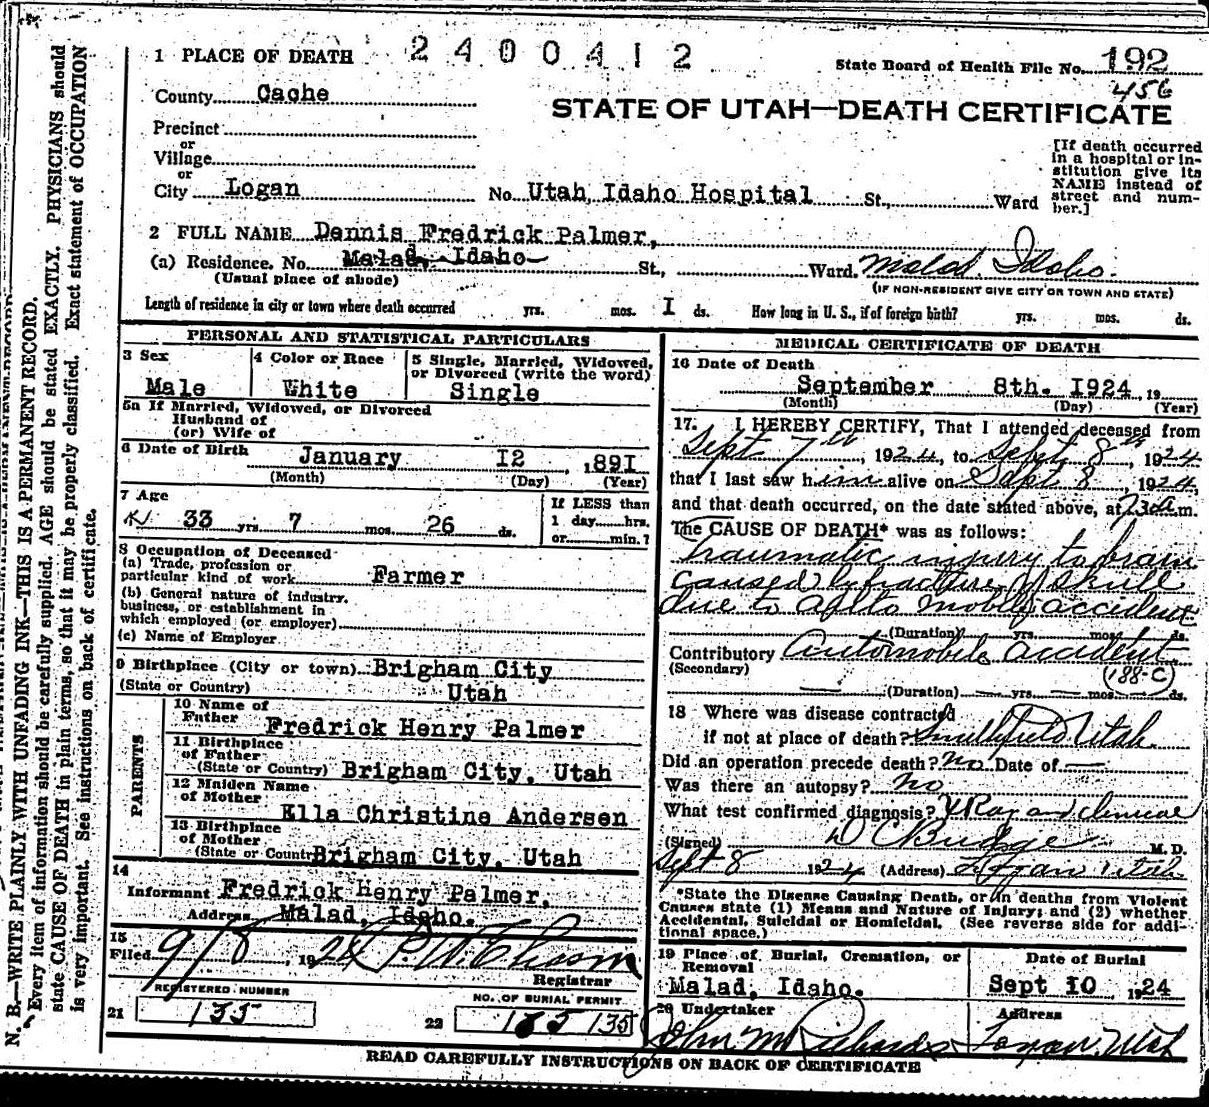 1 PLACE OF DEATH 2400412
State Board of Health File No. 192
456
County Cache
STATE OF UTAH—DEATH CERTIFICATE
Precinct
or
Village
or
City Logan No. Utah, Idaho Hospital St., Ward
[If death occurred in a hospital or in-
stitution give its NAME instead of street and num-
ber.]
2 FULL NAME Dennis Fredrick Palmer,
(a) Residence, No. Malad, Idaho St., Ward. Malad Idaho.
(Usual place of abode) (IF NON-RESIDENT GIVE CITY OR TOWN AND STATE)
Length of residence in city or town where death occurred yrs. mos. I ds. How long in U. S., if of foreign birth? yrs. mos. ds.
PERSONAL AND STATISTICAL PARTICULARS
3 Sex
Male
4 Color or Race
White
5 Single, Married, Widowed,
or Divorced (write the word)
Single
5a If Married, Widowed, or Divorced
Husband of
(or) Wife of
6 Date of Birth January I2 , 1891
(Month) (Day) (Year)
7 Age
33 yrs. 7 mos. 26 ds.
If LESS than
1 day....hrs.
or....min.?
8 Occupation of Deceased
(a) Trade, profession or
particular kind of work Farmer
(b) General nature of industry,
business, or establishment in
which employed (or employer)
(c) Name of Employer
9 Birthplace (City or town) Brigham City
(State or Country) Utah
PARENTS
10 Name of
Father Fredrick Henry Palmer
11 Birthplace
of Father
(State or Country) Brigham City, Utah
12 Maiden Name
of Mother Ella Christine Andersen
13 Birthplace
of Mother
(State or Country) Brigham City, Utah
14
Informant Fredrick Henry Palmer,
Address Malad, Idaho.
15
Filed 9/8, 1924
Registrar
REGISTERED NUMBER
21 135
NO. OF BURIAL PERMIT
22 135 135
MEDICAL CERTIFICATE OF DEATH
16 Date of Death
September 8th. I924, 19
(Month) (Day) (Year)
17. I HEREBY CERTIFY, That I attended deceased from
Sept 7th, 1924, to Sept. 8th, 1924
that I last saw him alive on Sept 8, 1924,
and that death occurred, on the date stated above, at m.
The CAUSE OF DEATH* was as follows:
Traumatic injury to brain
caused by fracture of skull
due to Automobile accident
(Duration) yrs. mos. ds.
Contributory Automobile accident
(Secondary) (188-C)
(Duration) yrs. mos. ds.
18 Where was disease contracted
if not at place of death? Smithfield Utah.
Did an operation precede death? no Date of
Was there an autopsy? no
What test confirmed diagnosis? X Ray and clinical
(Signed) D C Budge M. D.
Sept 8 1924 (Address) Logan Utah
*State the Disease Causing Death, or in deaths from Violent
Causes state (1) Means and Nature of Injury; and (2) whether
Accidental, Suicidal or Homicidal. (See reverse side for addi-
tional space.)
19 Place of Burial, Cremation, or
Removal
Malad, Idaho.
Date of Burial
Sept I0 1924
20 Undertaker
John M Richards
Address
Logan, Utah
READ CAREFULLY INSTRUCTIONS ON BACK OF CERTIFICATE
N. B.—WRITE PLAINLY WITH UNFADING INK—THIS IS A PERMANENT RECORD.
Every item of information should be carefully supplied. AGE should be stated EXACTLY. PHYSICIANS should
state CAUSE OF DEATH in plain terms, so that it may be properly classified. Exact statement of OCCUPATION
is very important. See instructions on back of certificate.